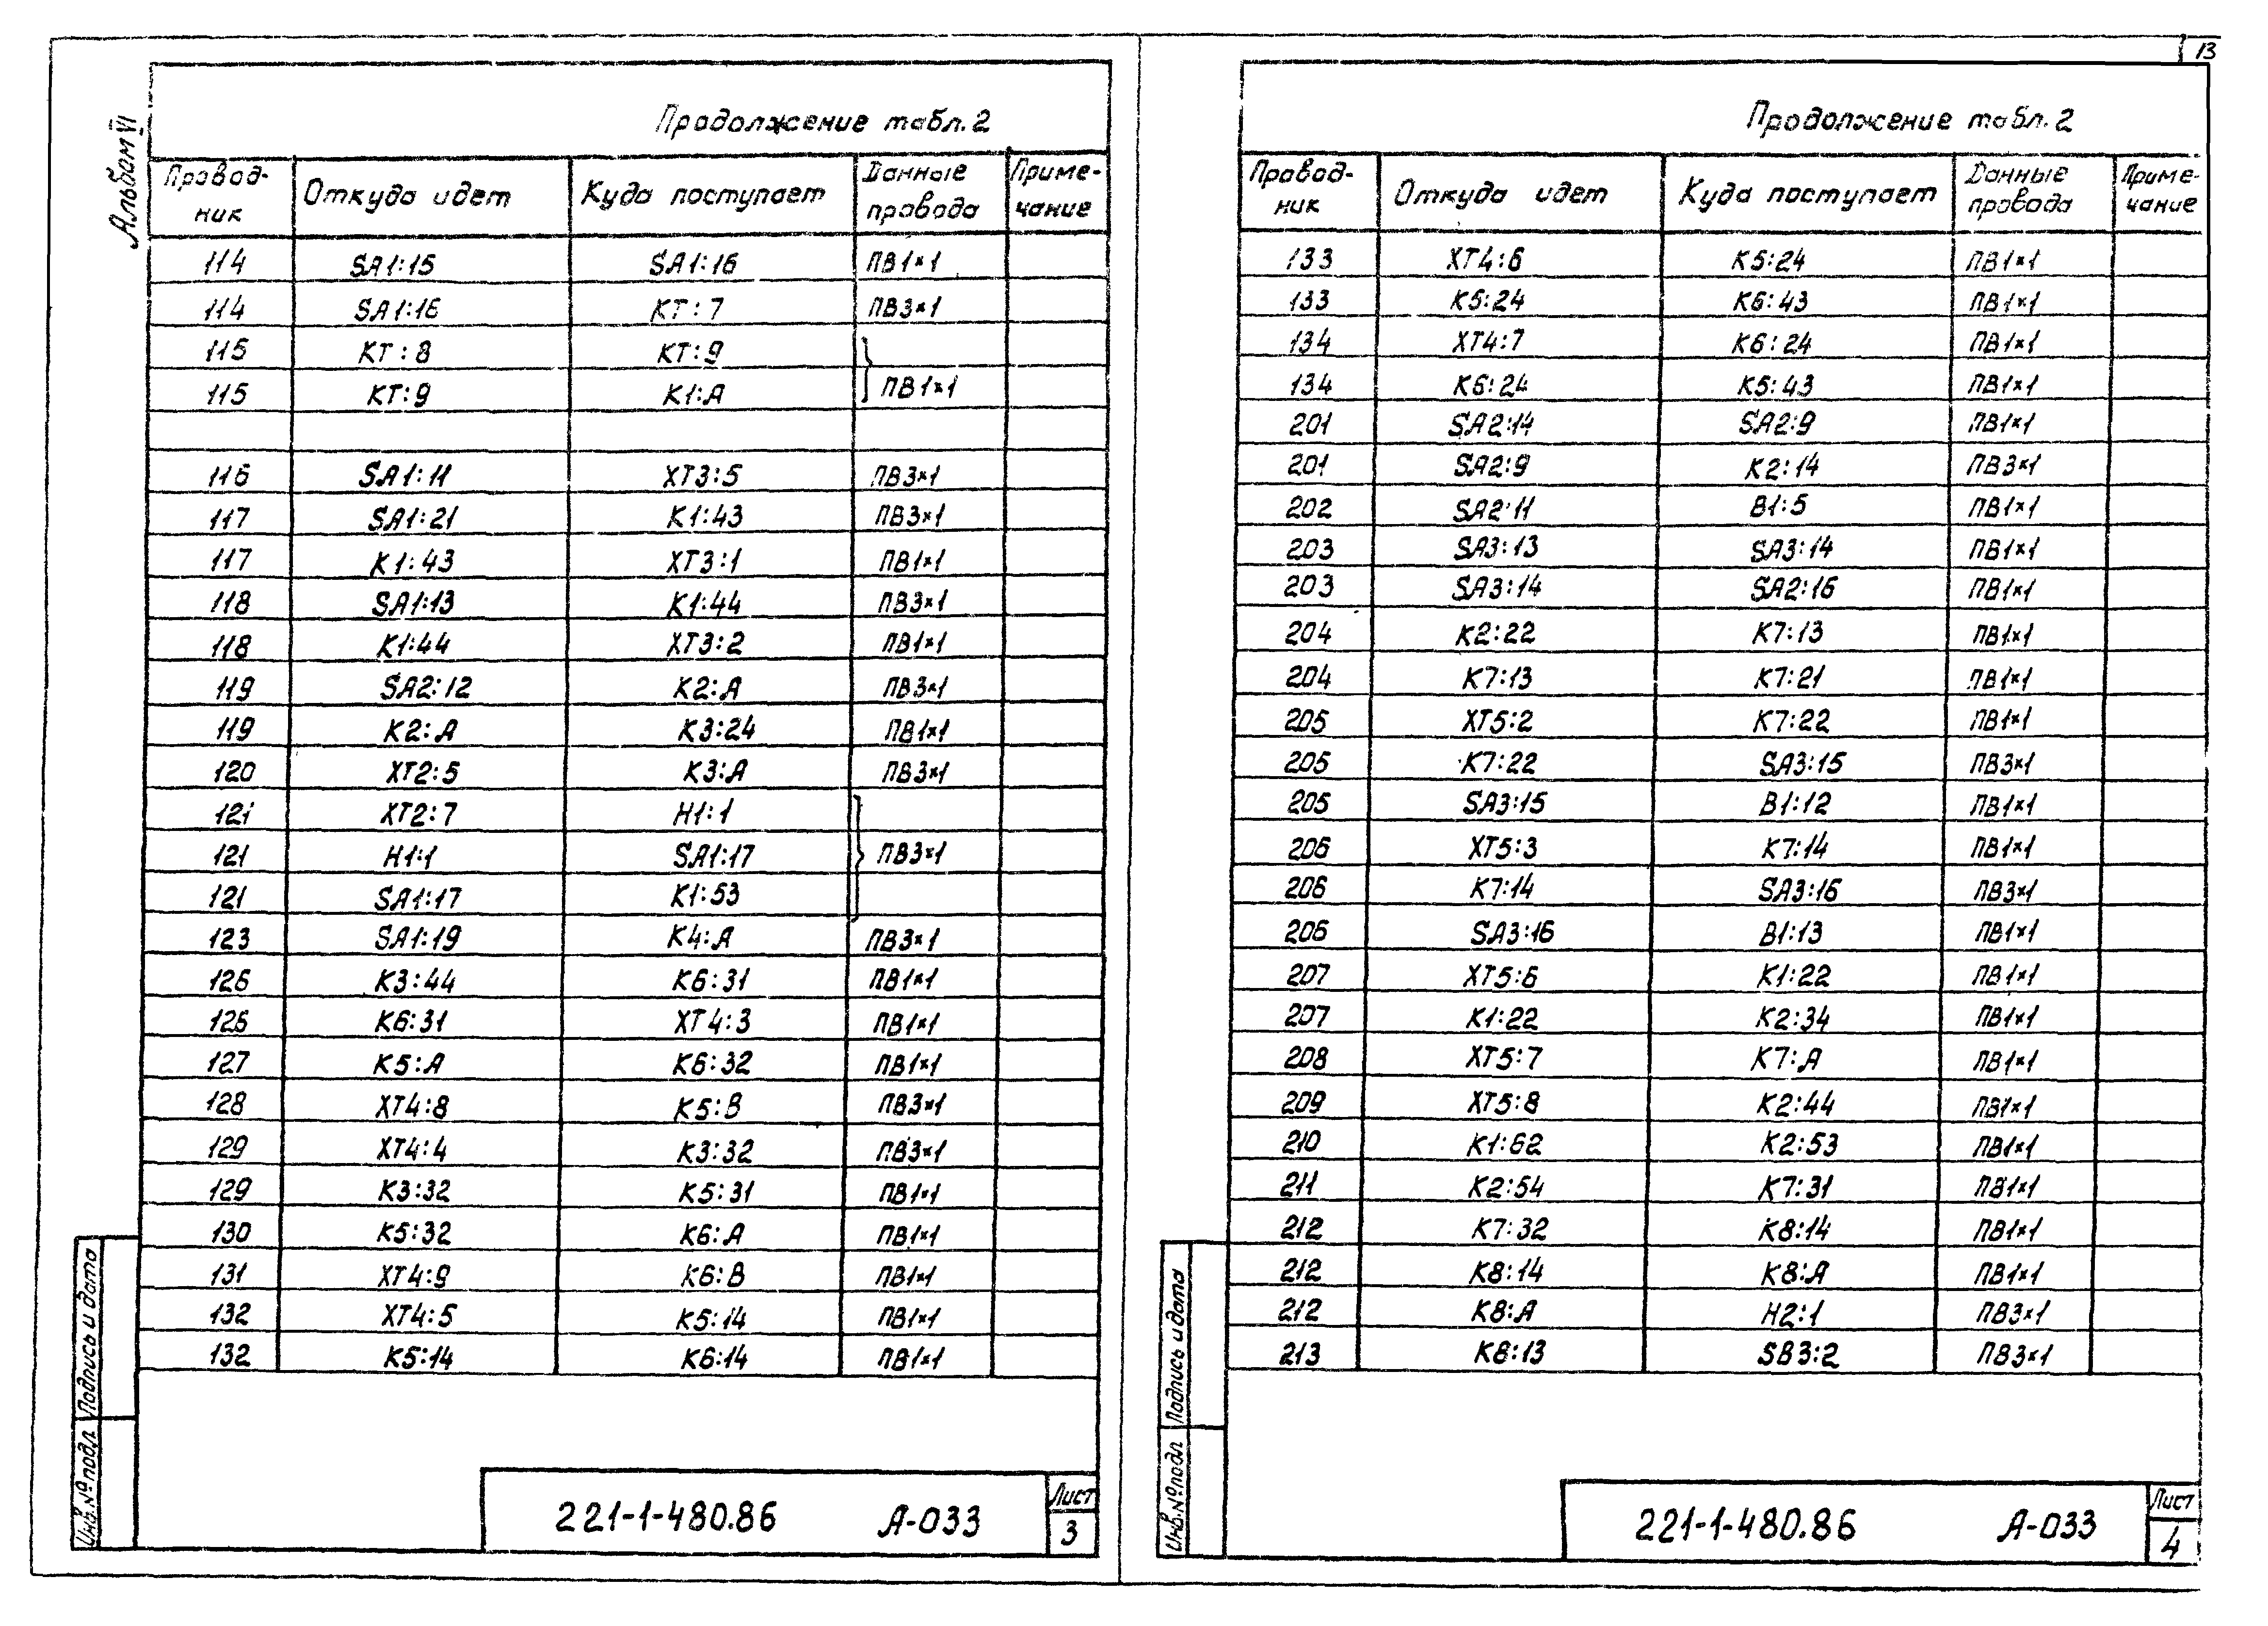 13
Альбом VI
Продолжение табл. 2
Провод-ник Откуда идет Куда поступает Данные провода Приме-чание
114 SA1:15 SA1:16 ПВ1×1
114 SA1:16 КТ:7 ПВ3×1
115 КТ:8 КТ:9
115 КТ:9 К1:А ПВ1×1
116 SA1:11 ХТ3:5 ПВ3×1
117 SA1:21 К1:43 ПВ3×1
117 К1:43 ХТ3:1 ПВ1×1
118 SA1:13 К1:44 ПВ3×1
118 К1:44 ХТ3:2 ПВ1×1
119 SA2:12 К2:А ПВ3×1
119 К2:А К3:24 ПВ1×1
120 ХТ2:5 К3:А ПВ3×1
121 ХТ2:7 Н1:1
121 Н1:1 SA1:17 ПВ3×1
121 SA1:17 К1:53
123 SA1:19 К4:А ПВ3×1
126 К3:44 К6:31 ПВ1×1
126 К6:31 ХТ4:3 ПВ1×1
127 К5:А К6:32 ПВ1×1
128 ХТ4:8 К5:В ПВ3×1
129 ХТ4:4 К3:32 ПВ3×1
129 К3:32 К5:31 ПВ1×1
130 К5:32 К6:А ПВ1×1
131 ХТ4:9 К6:В ПВ1×1
132 ХТ4:5 К5:14 ПВ1×1
132 К5:14 К6:14 ПВ1×1
Инв.№подл Подпись и дата
221-1-480.86 А-033
Лист
3
Продолжение табл. 2
Провод-ник Откуда идет Куда поступает Данные провода Приме-чание
133 ХТ4:6 К5:24 ПВ1×1
133 К5:24 К6:43 ПВ1×1
134 ХТ4:7 К6:24 ПВ1×1
134 К6:24 К5:43 ПВ1×1
201 SA2:14 SA2:9 ПВ1×1
201 SA2:9 К2:14 ПВ3×1
202 SA2:11 В1:5 ПВ1×1
203 SA3:13 SA3:14 ПВ1×1
203 SA3:14 SA2:16 ПВ1×1
204 К2:22 К7:13 ПВ1×1
204 К7:13 К7:21 ПВ1×1
205 ХТ5:2 К7:22 ПВ1×1
205 К7:22 SA3:15 ПВ3×1
205 SA3:15 В1:12 ПВ1×1
206 ХТ5:3 К7:14 ПВ1×1
206 К7:14 SA3:16 ПВ3×1
206 SA3:16 В1:13 ПВ1×1
207 ХТ5:6 К1:22 ПВ1×1
207 К1:22 К2:34 ПВ1×1
208 ХТ5:7 К7:А ПВ1×1
209 ХТ5:8 К2:44 ПВ1×1
210 К1:62 К2:53 ПВ1×1
211 К2:54 К7:31 ПВ1×1
212 К7:32 К8:14 ПВ1×1
212 К8:14 К8:А ПВ1×1
212 К8:А Н2:1 ПВ3×1
213 К8:13 SB3:2 ПВ3×1
Инв.№подл Подпись и дата
221-1-480.86 А-033
Лист
4